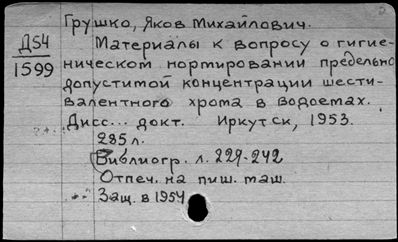 Грушко, Яков Михайлович.
Д54
1599
Материалы к вопросу о гигие-
ническом нормировании предельно
допустимой концентрации шести-
валентного хрома в водоемах.
Дисс... докт. Иркутск, 1953.
285 л.
Библиогр. л. 229-242
Отпеч. на пиш. маш.
Защ. в 1954